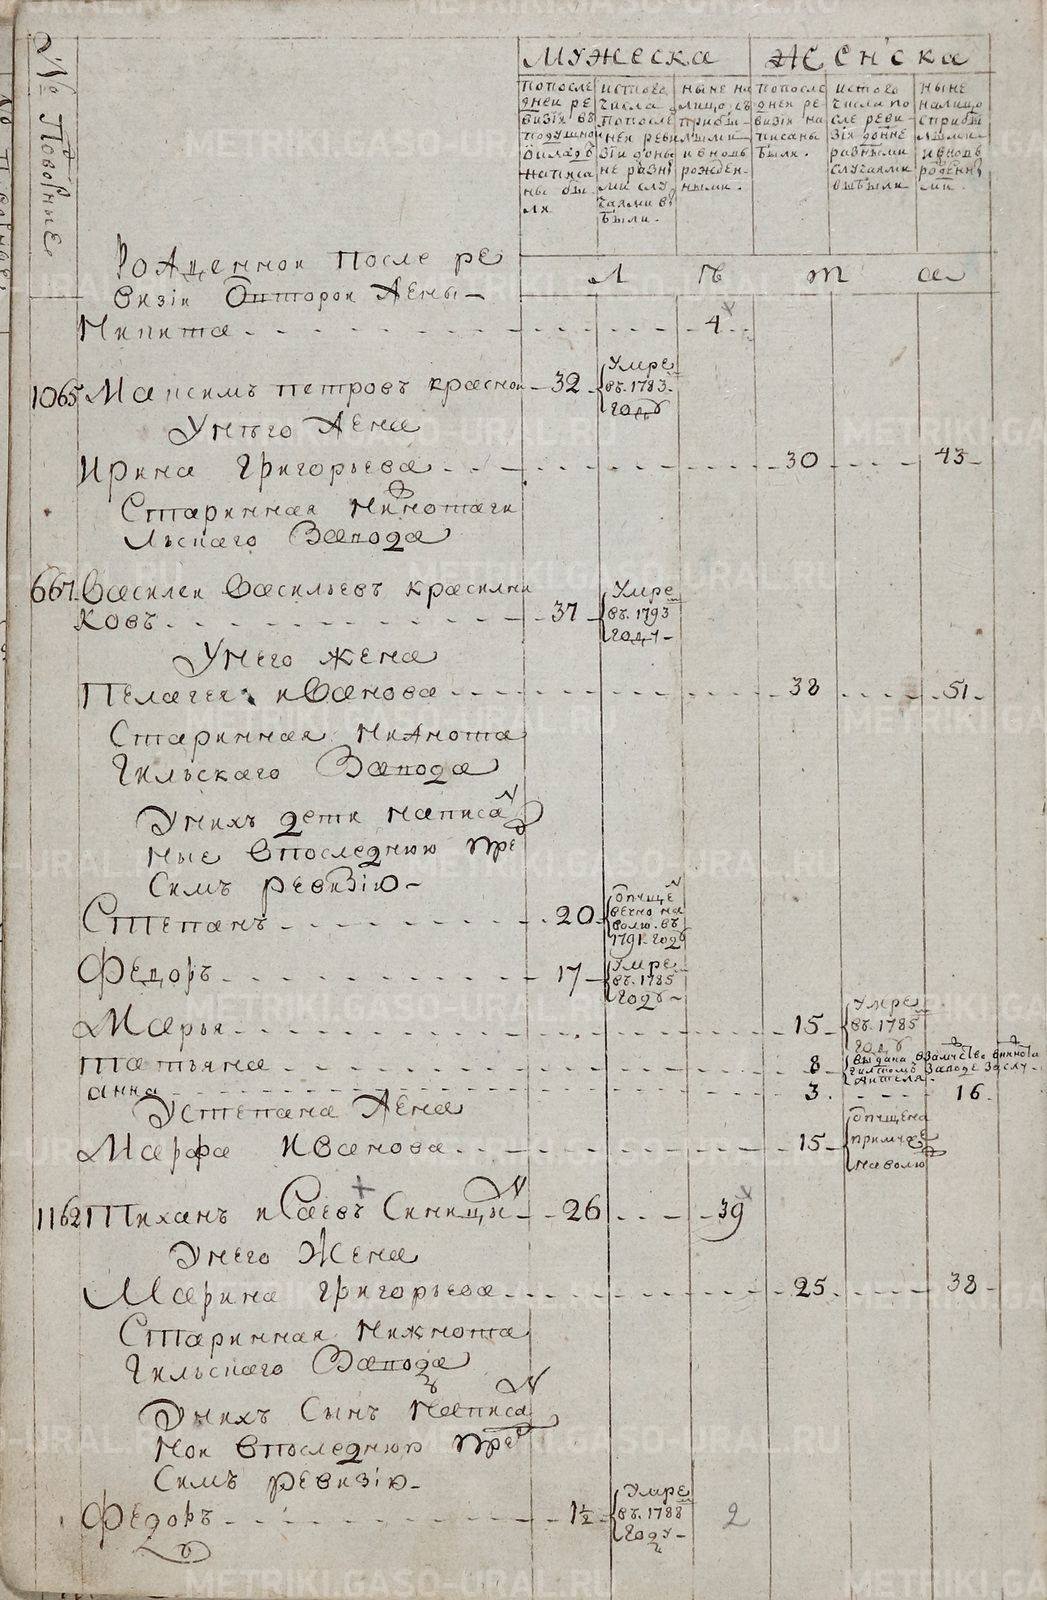 № Дворные
МУЖЕСКА ЖЕНСКА
Попосле
дней ре
визіи въ
подушной
окладъ
написа
ны бы
ли
истого
числа
попосле
ней реви
зіи доны
не разны
ми слу
чаями вы
были.
ныне на
лицо, съ
прибы
лыми
и вновь
рожден
ными.
Попосле
дней ре
визіи на
писаны
были.
истого
числа по
сле реви
зіи доне
разными
случаями
выбыли
ныне
налицо
сприбы
лыми
ивновь
рожденны
ми.
Л ѣ т а
Рожденной после ре
визіи Отпторой жены
Никита 4
1065 Максимъ петровъ красной 32 Умре
въ 1783
году
Унего жена
Ирина Григорьева 30 43
Старинная нижнотаги
льскаго Завода
667 Василей Васильевъ красилни
ковъ 37 Умре
въ 1793
году
Унего жена
Пелагея ивановa 38 51
Старинная нижнота
гильскаго Завода
Униxъ дети написан
ные впоследнюю пред
симъ ревизію
Степанъ 20 отпущенъ
вечно на
волю въ
1791 году
Федоръ 17 Умре
въ 1785
году
Марья 15 Умре
въ 1785
году
татьяна 8 выдана взамужство внижнота
гилскомъ Заводе Заслу
жителя
анна 3 16
Устепана жена
Марфа Иванова 15 отпущена
примуже
наволю
1162 Тиханъ исаевъ Синицын 26 39
Унего Жена
Марина григорьева 25 38
Старинная нижнота
гильскаго Завода
Униxъ Сынъ написан
ной впоследнюю пред
симъ ревизію
Федоръ 1½ Умре
въ 1788
году 2
METRIKI.GASO-URAL.RU